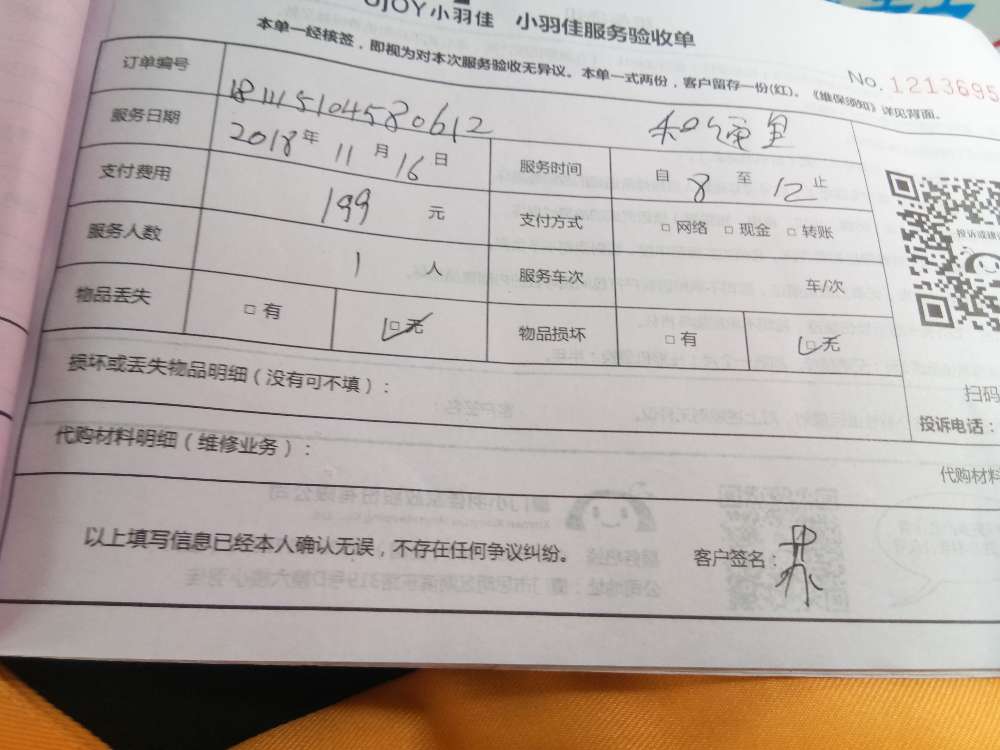 UJOY小羽佳 小羽佳服务验收单
本单一经核签，即视为对本次服务验收无异议。本单一式两份，客户留存一份(红)。《维保须知》详见背面。
No. 1213695
订单编号 181115104580612
服务日期 2018年 11月 16日 服务时间 自 8 至 12 止
支付费用 199 元 支付方式 □ 网络 □ 现金 □ 转账
服务人数 1 人 服务车次 车/次
物品丢失 □ 有 □ 无 物品损坏 □ 有 □ 无
投诉或建
扫码
投诉电话：
损坏或丢失物品明细（没有可不填）：
代购材料明细（维修业务）：
代购材料
以上填写信息已经本人确认无误，不存在任何争议纠纷。 客户签名：